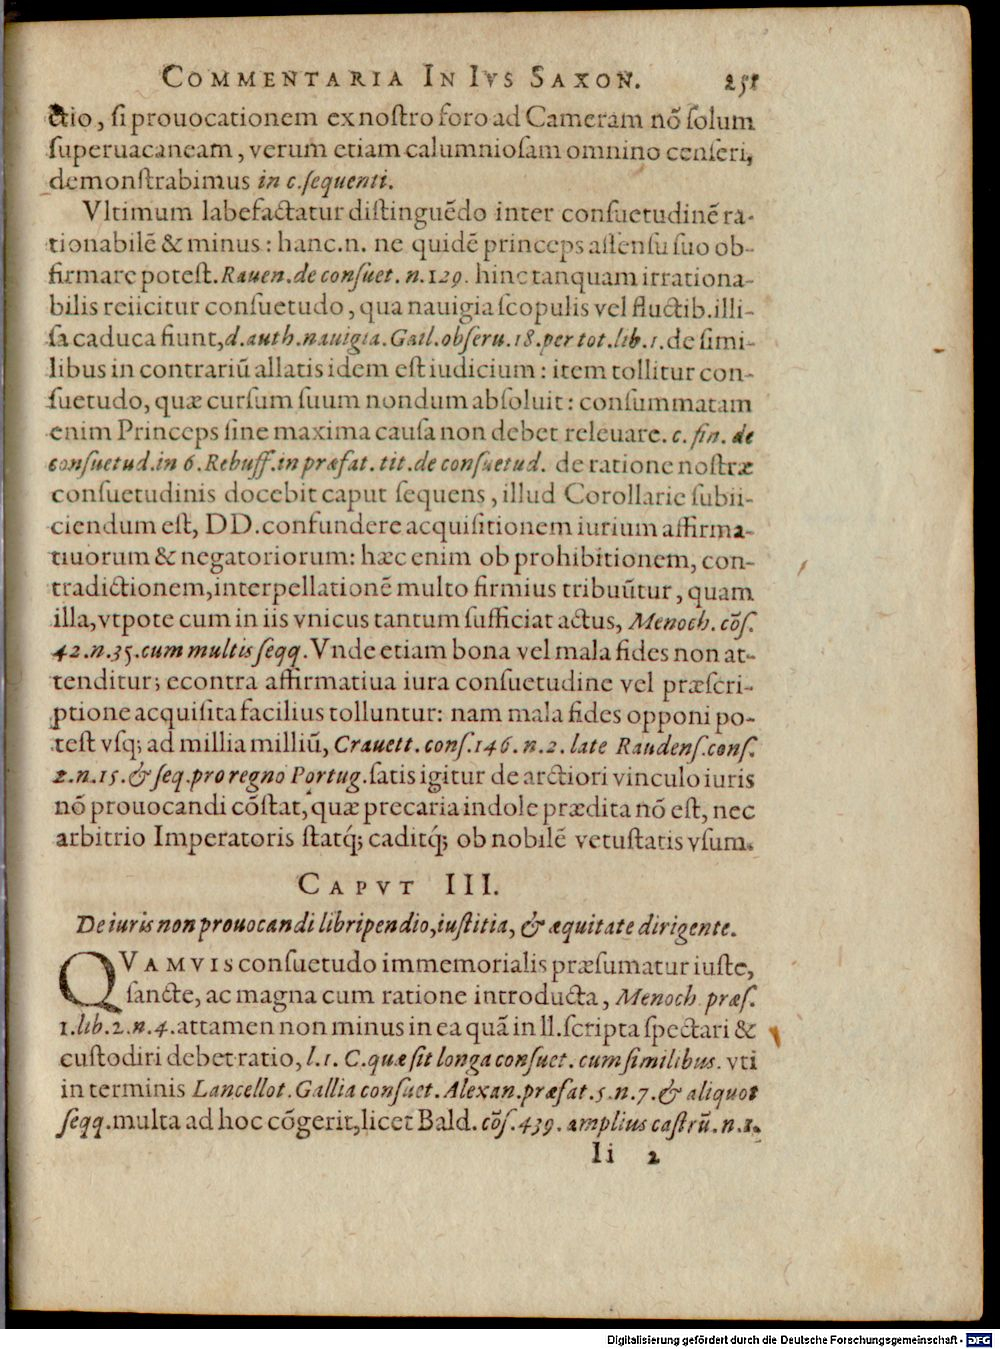 COMMENTARIA IN IVS SAXON. 251
ctio, si prouocationem ex nostro foro ad Cameram nō solum
superuacaneam, verum etiam calumniosam omnino censeri,
demonstrabimus in c. sequenti.
Vltimum labefactatur distinguēdo inter consuetudinē ra-
tionabilē & minus: hanc.n. ne quidē princeps assensu suo ob-
firmare potest. Rauen. de consuet. n. 129. hinc tanquam irrationa-
bilis reiicitur consuetudo, qua nauigia scopulis vel fluctib. illi-
sa caduca fiunt, d. auth. nauigia. Gail. obseru. 18. per tot. lib. 1. de simi-
libus in contrariū allatis idem est iudicium: item tollitur con-
suetudo, quæ cursum suum nondum absoluit: consummatam
enim Princeps sine maxima causa non debet releuare. c. fin. de
consuetud. in 6. Rebuff. in præfat. tit. de consuetud. de ratione nostræ
consuetudinis docebit caput sequens, illud Corollarie subii-
ciendum est, DD. confundere acquisitionem iurium affirma-
tiuorum & negatoriorum: hæc enim ob prohibitionem, con-
tradictionem, interpellationē multo firmius tribuūtur, quam
illa, vtpote cum in iis vnicus tantum sufficiat actus, Menoch. cōs.
42. n. 35. cum multis seqq. Vnde etiam bona vel mala fides non at-
tenditur; econtra affirmatiua iura consuetudine vel præscri-
ptione acquisita facilius tolluntur: nam mala fides opponi po-
test vsq; ad millia milliū, Crauett. cons. 146. n. 2. late Raudens. cons.
2. n. 15. & seq. pro regno Portug. satis igitur de arctiori vinculo iuris
nō prouocandi cōstat, quæ precaria indole prædita nō est, nec
arbitrio Imperatoris statq́; caditq́; ob nobilē vetustatis vsum.
CAPVT III.
De iuris non prouocandi libripendio, iustitia, & æquitate dirigente.
QVAMVIS consuetudo immemorialis præsumatur iuste,
sancte, ac magna cum ratione introducta, Menoch. præs.
1. lib. 2. n. 4. attamen non minus in ea quā in ll. scripta spectari &
custodiri debet ratio, l. 1. C. quæ sit longa consuet. cum similibus. vti
in terminis Lancellot. Gallia consuet. Alexan. præfat. 5. n. 7. & aliquot
seqq. multa ad hoc cōgerit, licet Bald. cōs. 439. amplius castrū. n. 1.
Ii 2
Digitalisierung gefördert durch die Deutsche Forschungsgemeinschaft - DFG